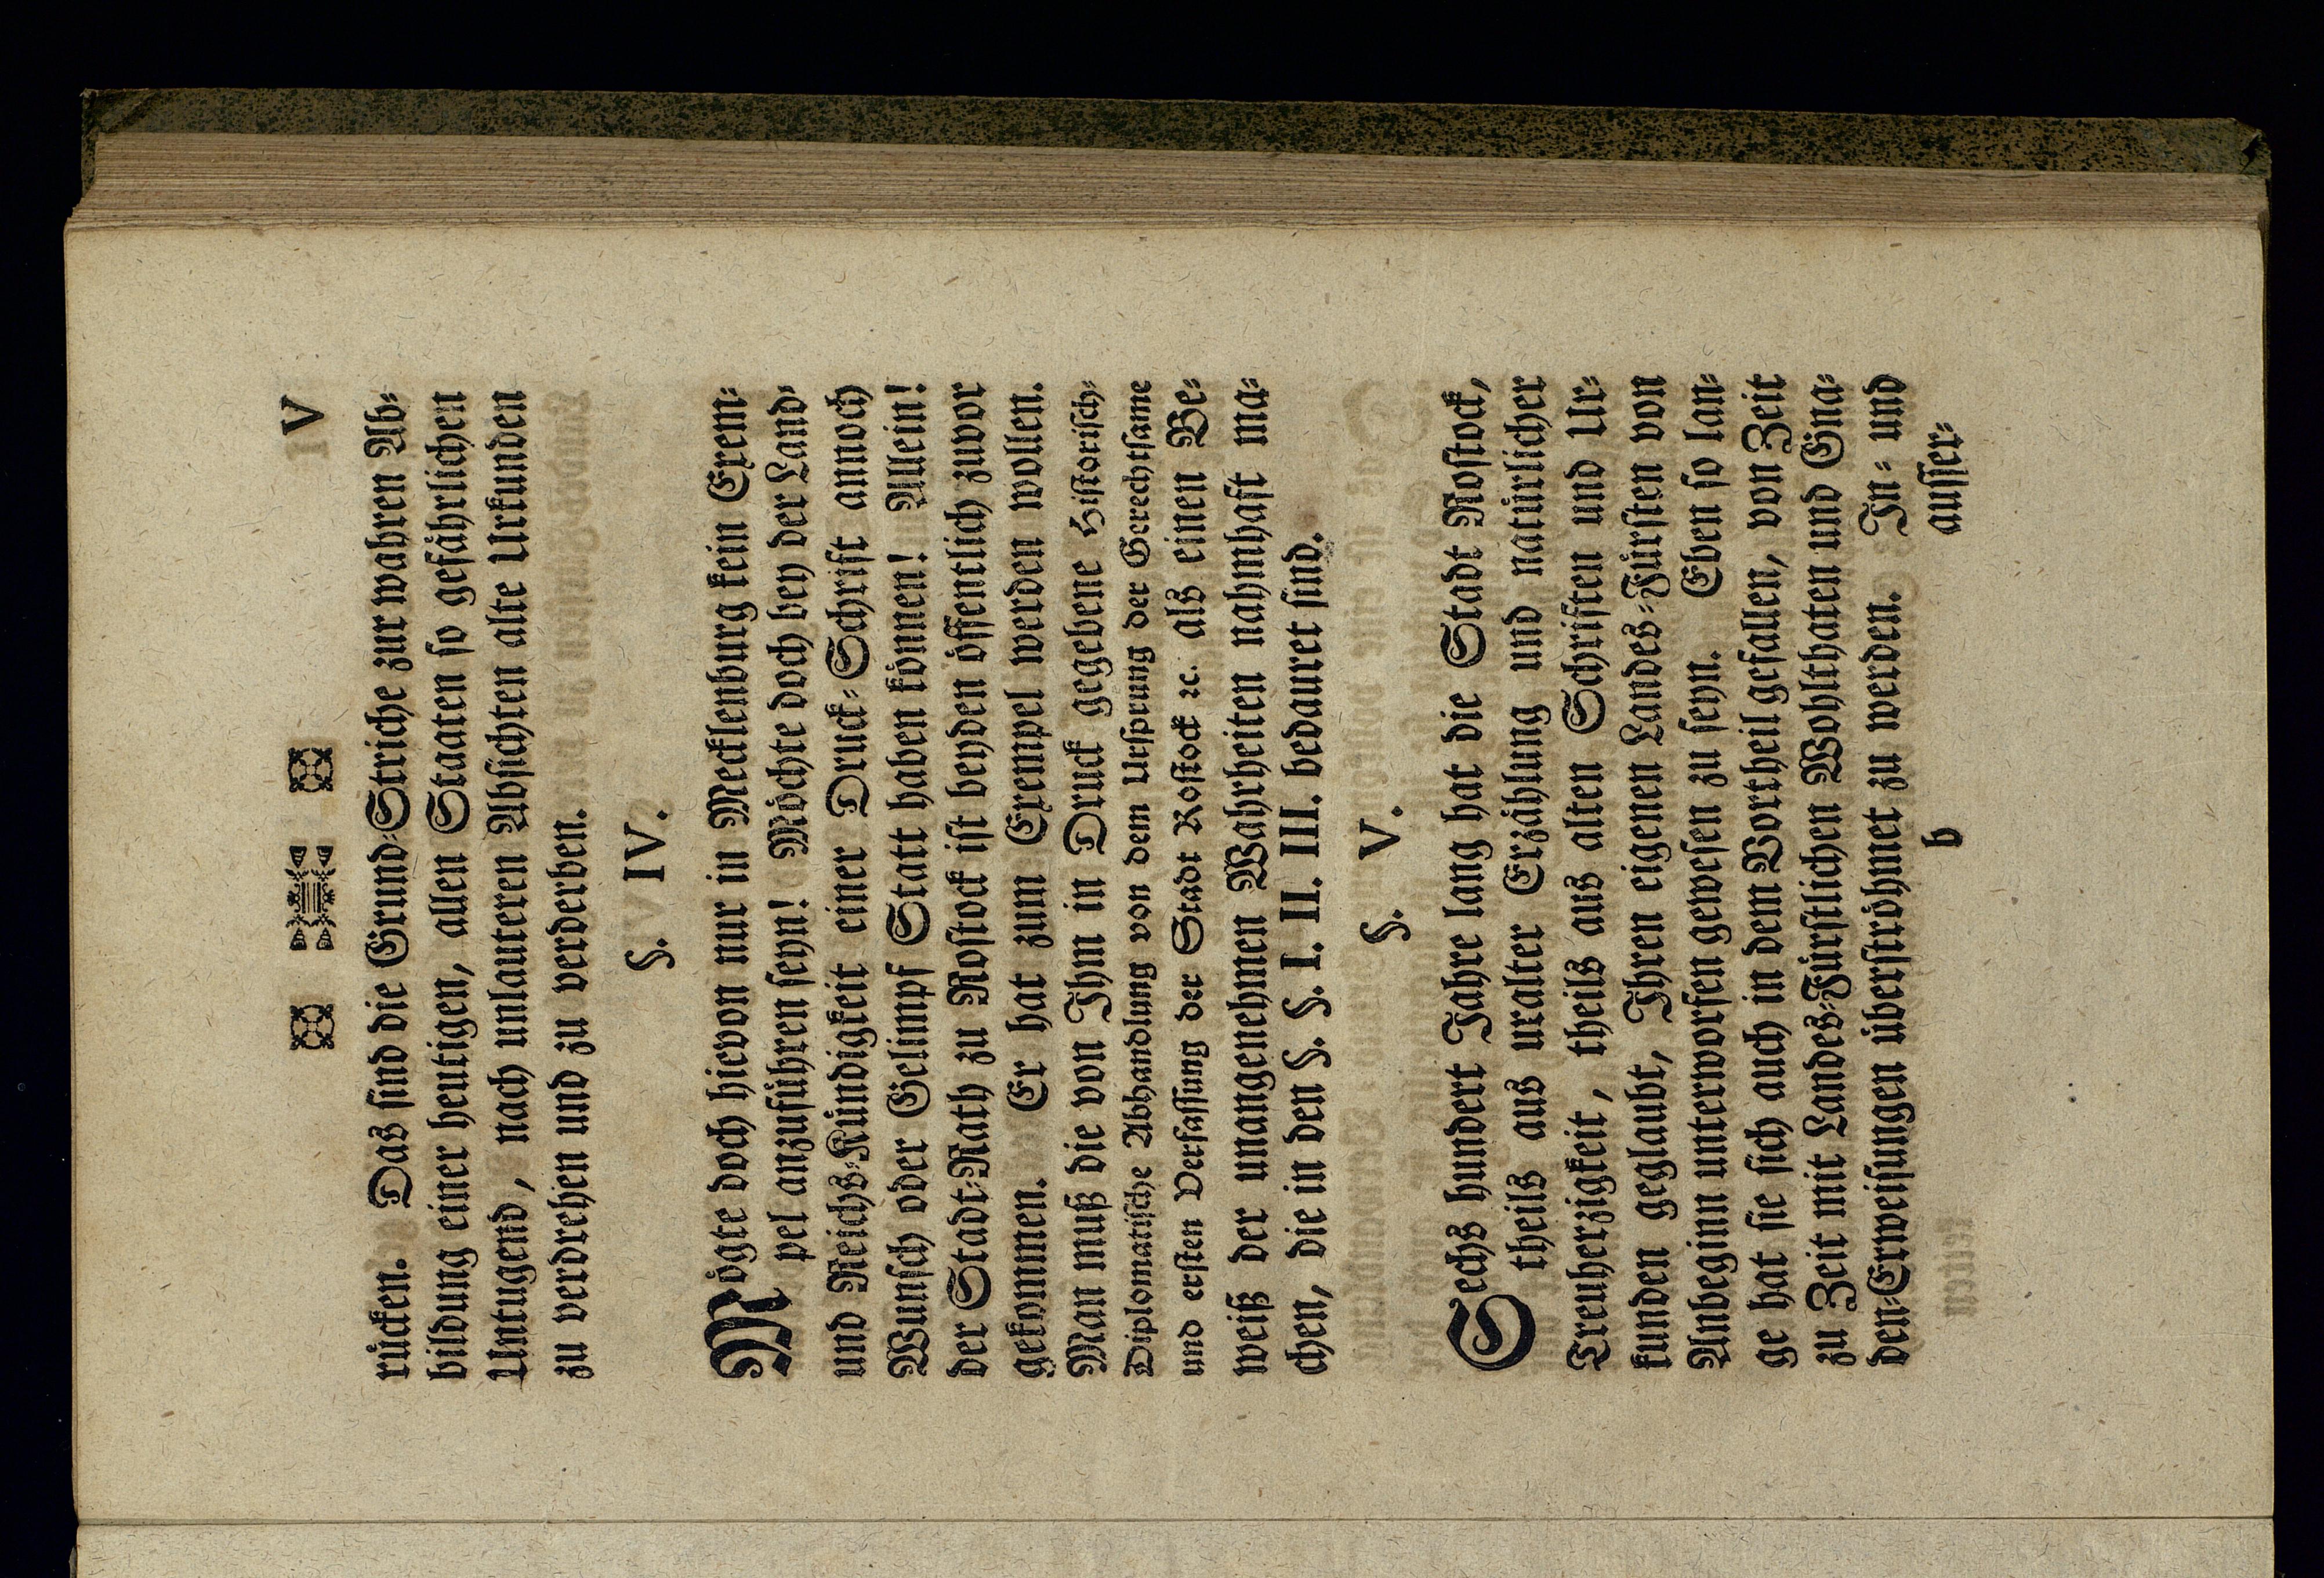 V
rücken. Das sind die Grund=Striche zur wahren Ab=
bildung einer heutigen, allen Staaten so gefährlichen
Untugend, nach unlauteren Absichten alte Urkunden
zu verdrehen und zu verderben.
§. IV.
Mögte doch hievon nur in Mecklenburg kein Exem=
pel anzuführen seyn! Möchte doch bey der Land=
und Reichs=Kündigkeit einer Druck=Schrift annoch
Wunsch oder Gelimpf Statt haben können! Allein!
der Stadt=Rath zu Rostock ist beyden öffentlich zuvor
gekommen. Er hat zum Exempel werden wollen.
Man muß die von Ihm in Druck gegebene Historisch=
Diplomatische Abhandlung von dem Ursprung der Gerechtsame
und ersten Verfassung der Stadt Rostock ꝛc. als einen Be=
weiß der unangenehmen Wahrheiten nahmhaft ma=
chen, die in den §. §. I. II. III. bedauret sind.
§. V.
Sechs hundert Jahre lang hat die Stadt Rostock,
theils aus uralter Erzählung und natürlicher
Treuherzigkeit, theils aus alten Schriften und Ur=
kunden geglaubt, Ihren eigenen Landes=Fürsten von
Anbeginn unterworfen gewesen zu seyn. Eben so lan=
ge hat sie sich auch in dem Vortheil gefallen, von Zeit
zu Zeit mit Landes=Fürstlichen Wohlthaten und Gna=
den=Erweisungen überströhmet zu werden. In= und
b ausser=